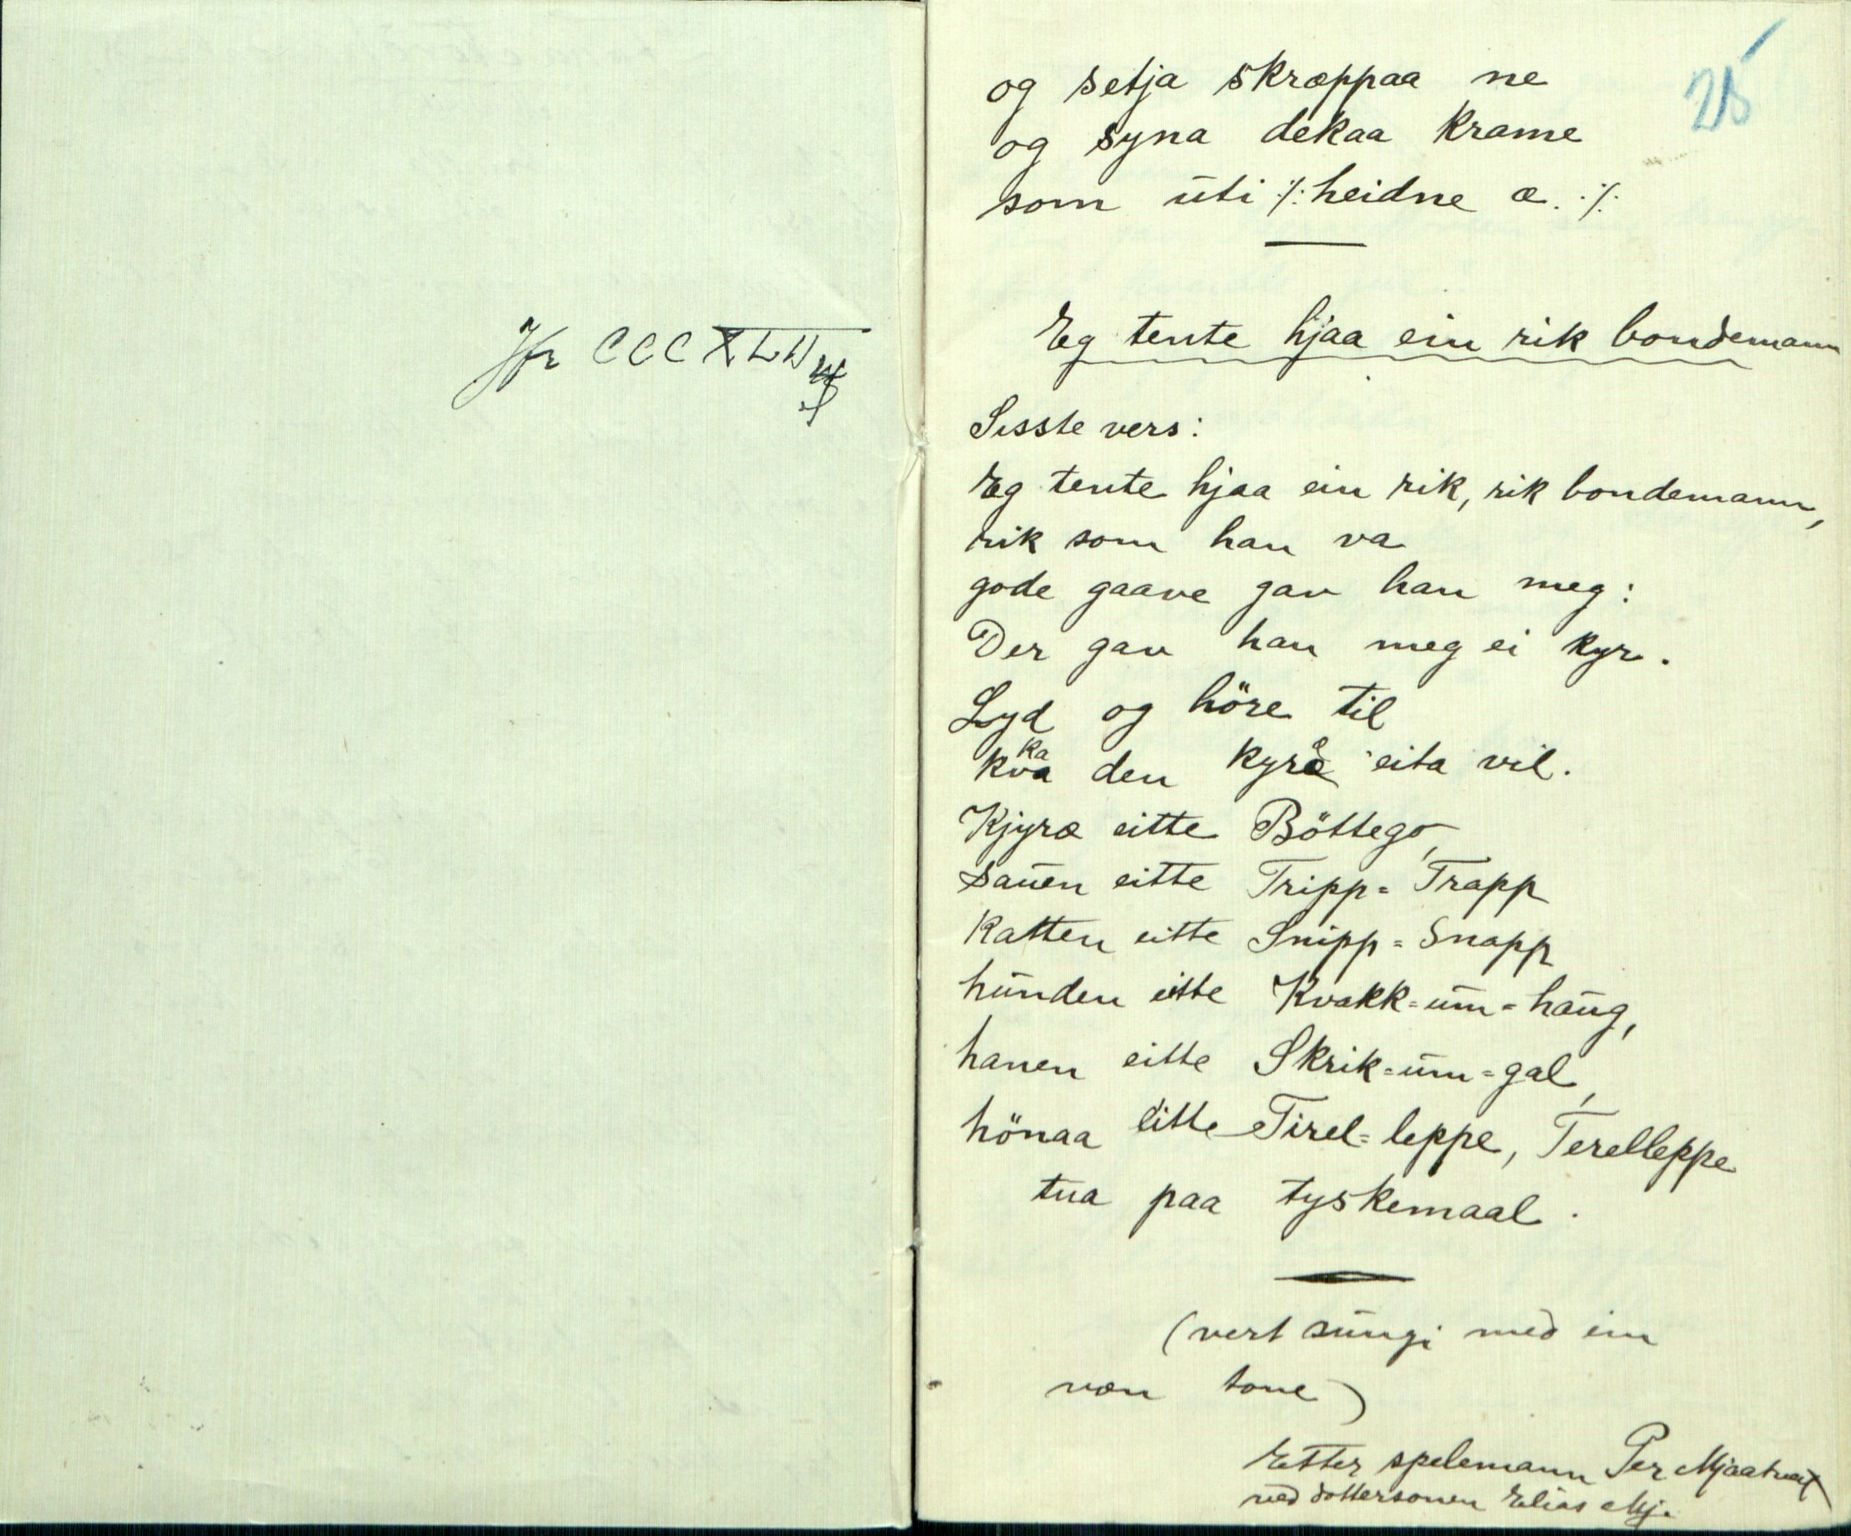 Jfr CCCXLII
25
og setja skræppaa ne
og syna dekaa krame
som uti ٪ heidne æ. ٪
Eg tente hjaa ein rik bondemann
Sisste vers:
Eg tente hjaa ein rik, rik bondemann,
rik som han va
gode gaave gav han meg:
Der gav han meg ei kyr.
Lyd og höre til
ka
kva den kyræ eita vil.
Kjyræ eitte Böttego,
sauen eitte Tripp-Trapp
Katten eitte Snipp-Snapp
hunden eitte Kvakk-um-haug,
hanen eitte Skrik-um-gal,
hönaa eitte Tirel-leppe, Terelleppe
tua paa tyskemaal.
(vert sungi med ein
væn tone)
Etter spelemann Per Mjaatveit
ved dottersonen Elias Mj.